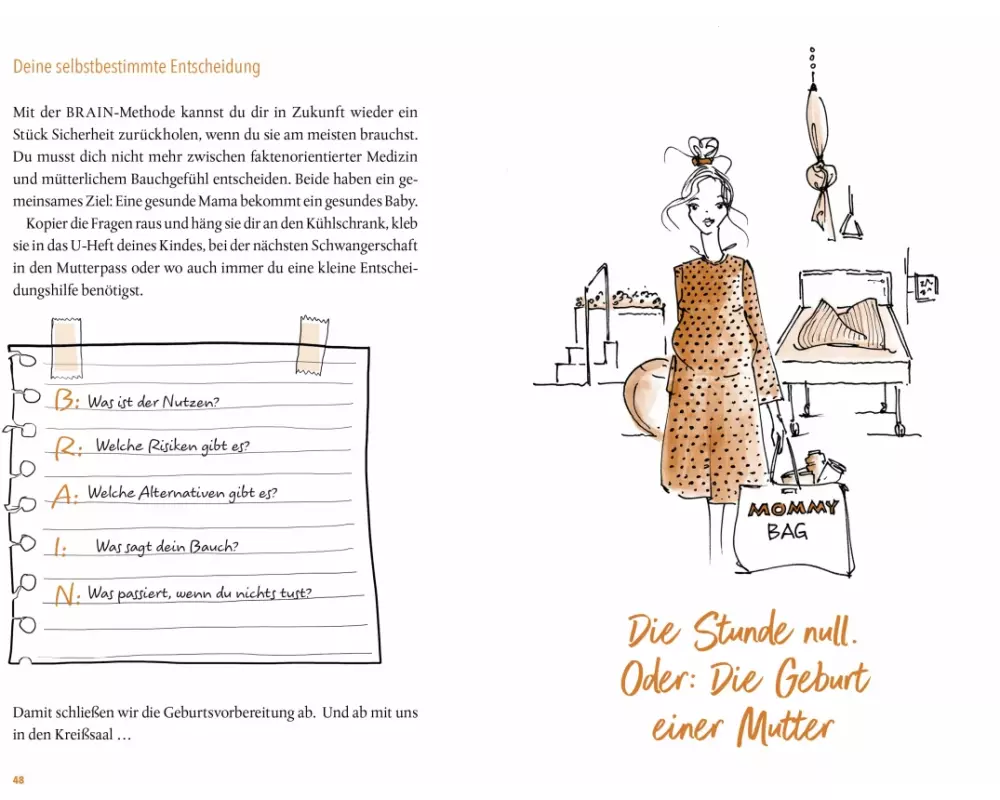 Deine selbstbestimmte Entscheidung
Mit der BRAIN-Methode kannst du dir in Zukunft wieder ein
Stück Sicherheit zurückholen, wenn du sie am meisten brauchst.
Du musst dich nicht mehr zwischen faktenorientierter Medizin
und mütterlichem Bauchgefühl entscheiden. Beide haben ein ge-
meinsames Ziel: Eine gesunde Mama bekommt ein gesundes Baby.
Kopier die Fragen raus und häng sie dir an den Kühlschrank, kleb
sie in das U-Heft deines Kindes, bei der nächsten Schwangerschaft
in den Mutterpass oder wo auch immer du eine kleine Entschei-
dungshilfe benötigst.
B: Was ist der Nutzen?
R: Welche Risiken gibt es?
A: Welche Alternativen gibt es?
I: Was sagt dein Bauch?
N: Was passiert, wenn du nichts tust?
Damit schließen wir die Geburtsvorbereitung ab. Und ab mit uns
in den Kreißsaal …
48
MOMMY
BAG
Die Stunde null.
Oder: Die Geburt
einer Mutter